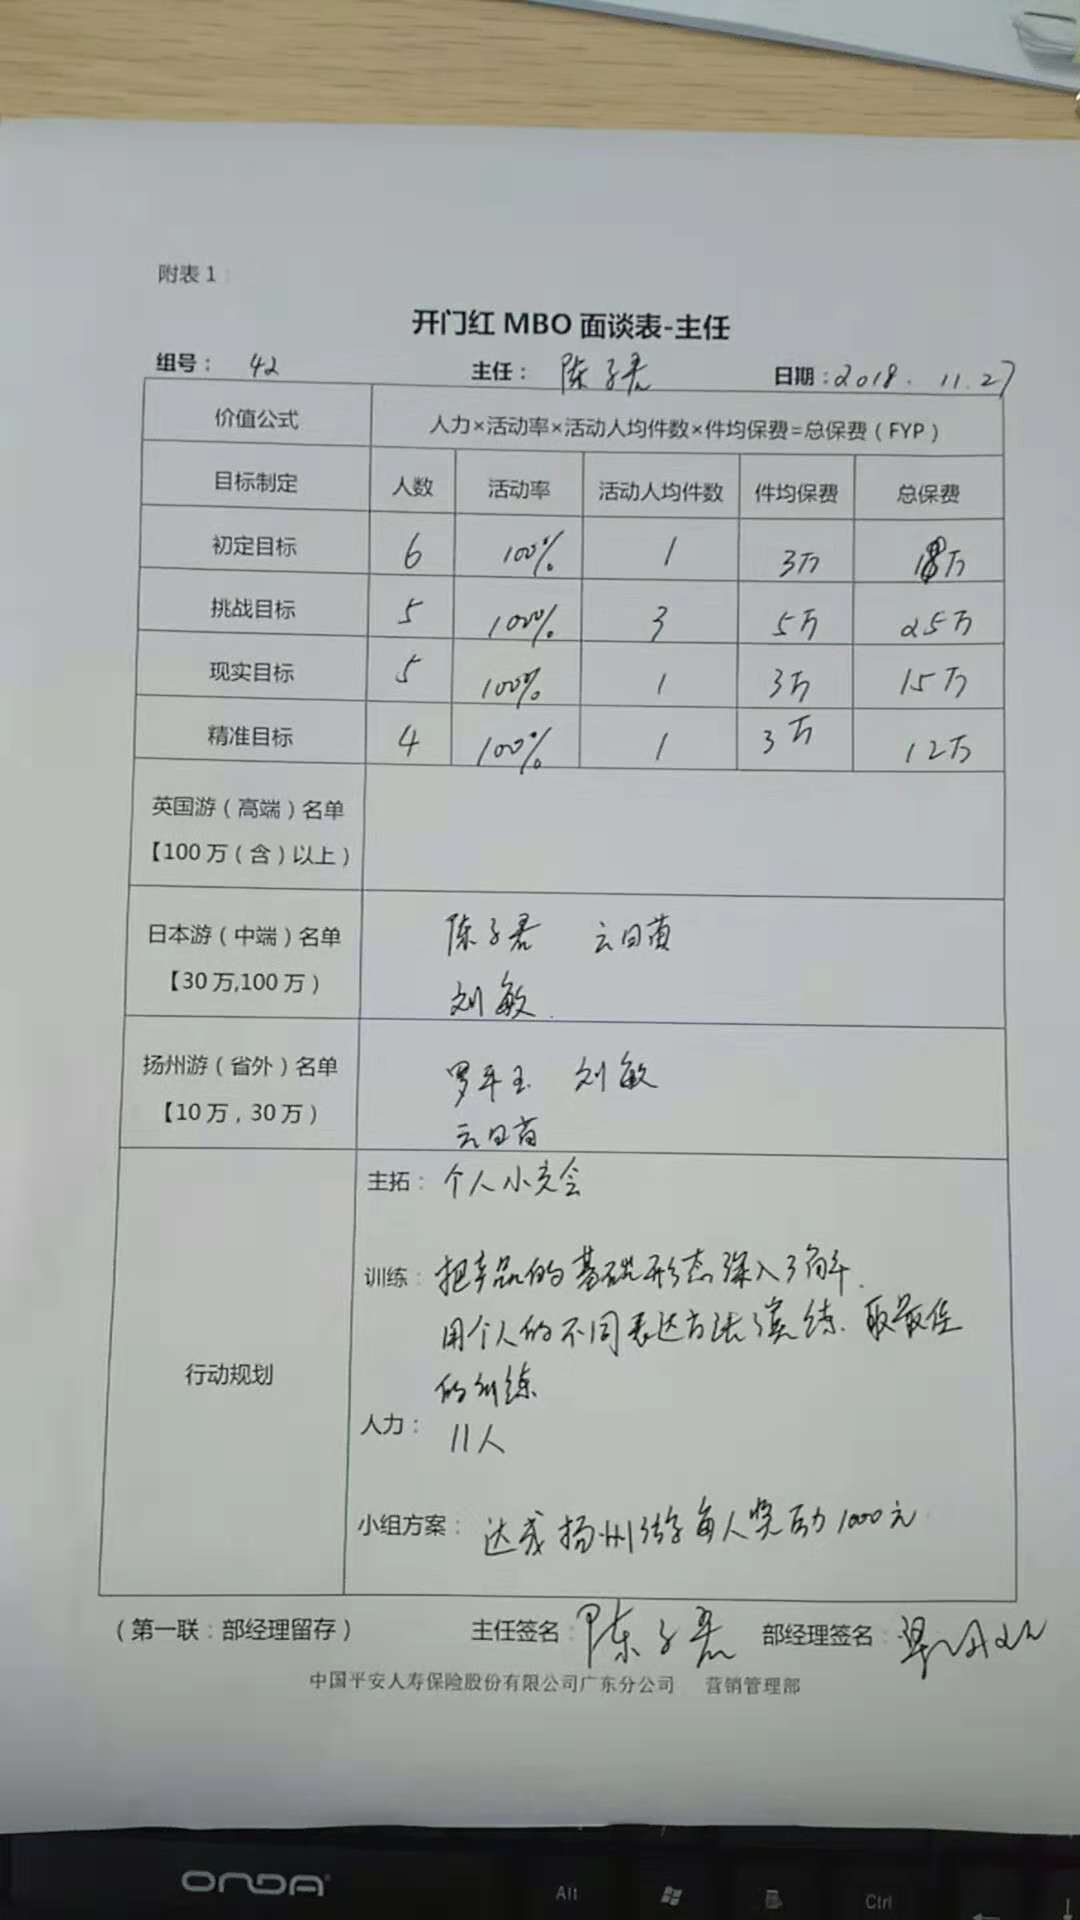 附表 1
开门红 MBO 面谈表-主任
组号： 42 主任： 陈子君 日期：2018.11.27
价值公式 人力×活动率×活动人均件数×件均保费=总保费（FYP）
目标制定 人数 活动率 活动人均件数 件均保费 总保费
初定目标 6 100% 1 3万 18万
挑战目标 5 100% 3 5万 25万
现实目标 5 100% 1 3万 15万
精准目标 4 100% 1 3万 12万
英国游（高端）名单
【100 万（含）以上）
日本游（中端）名单 陈子君 云日苗
【30 万,100 万） 刘敏
扬州游（省外）名单 罗平玉 刘敏
【10 万，30 万） 云日苗
行动规划
主拓： 个人小交会
训练： 把产品的基础形态深入了解.
用个人的不同表达方法演练、取最佳
的训练
人力： 11人
小组方案： 达成扬州游每人奖励1000元
（第一联：部经理留存） 主任签名： 陈子君 部经理签名：
中国平安人寿保险股份有限公司广东分公司 营销管理部
ONDA
Alt
Ctrl